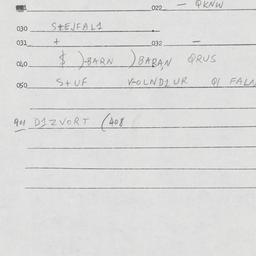 022 — QKNW
030 STEJFAL1
031 + 032 —
040 $ )-BARN )BARAN QRUS
050 STUF VOLND1UR Q1 FALA
901 D1ZVORT (408